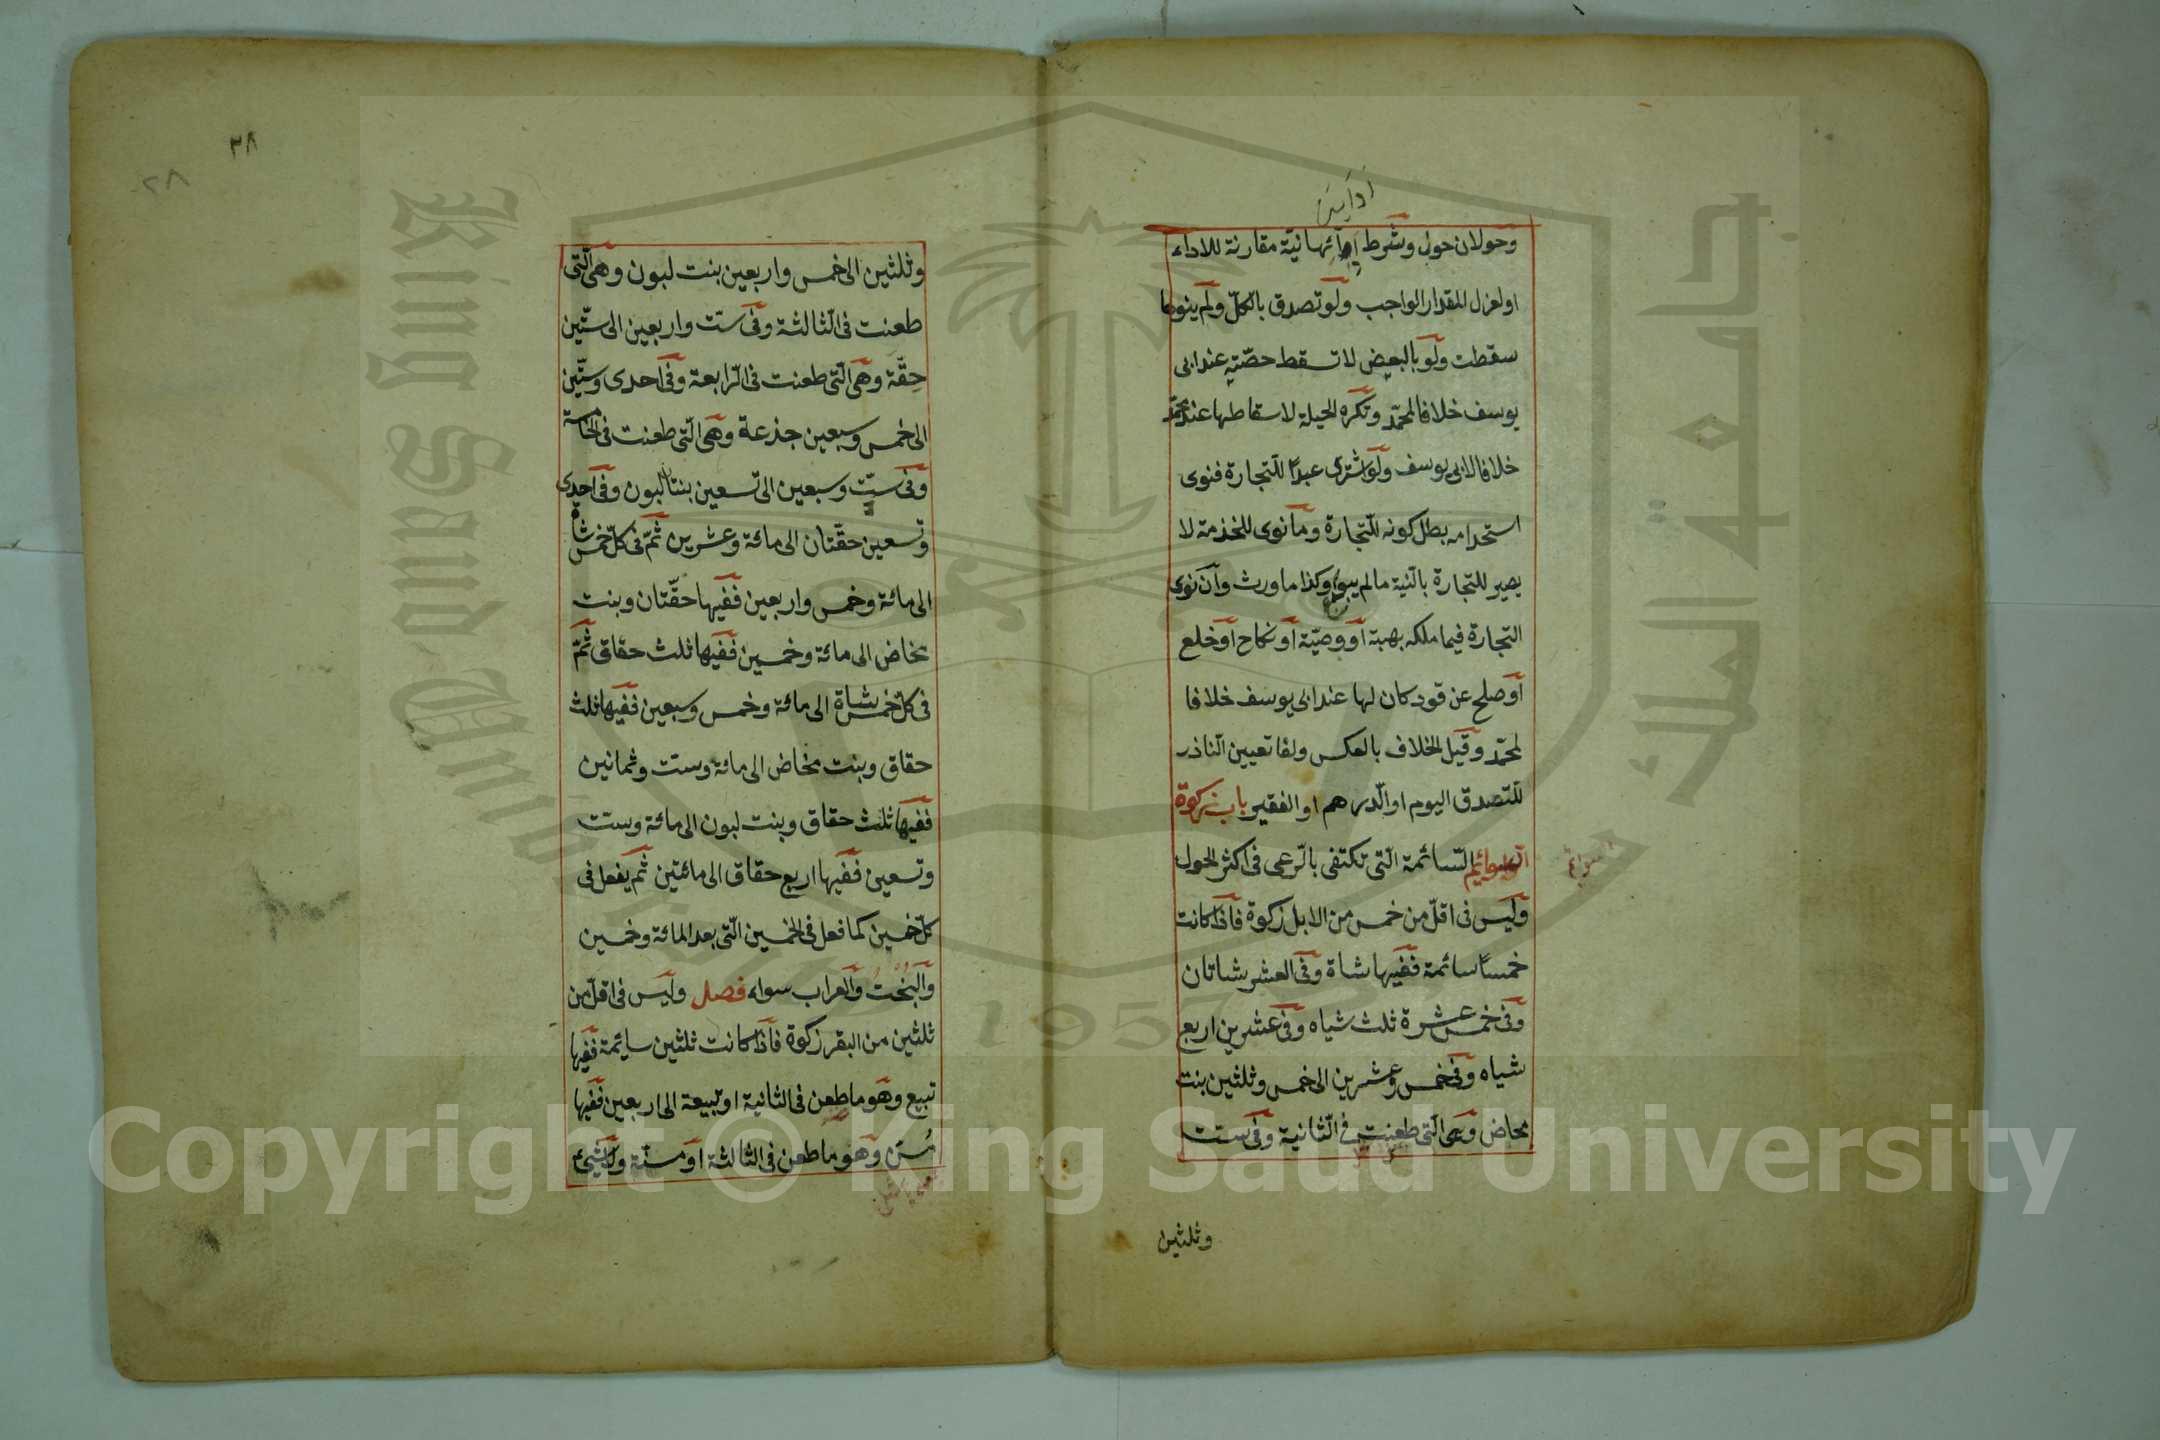 وحولان حول وشرط ادائها نيّة مقارنة للاداء
او لعزل المقدار الواجب ولو تصدق بالكلّ ولم ينوها
سقطت ولو بالبعض لا تسقط حصّته عند ابى
يوسف خلافا لمحمّد وتكره الحيلة لاسقاطها عند محمّد
خلافا لابى يوسف ولو اشترى عبدًا للتجارة فنوى
استخدامه بطل كونه للتجارة وما نوى للخدمة لا
يصير للتجارة بالنّية ما لم يبعه وكذا ما ورث وان نوى
التجارة فيما ملكه بهبة او وصيّة او نكاح او خلع
او صلح عن قود كان لها عند ابى يوسف خلافا
لمحمّد وقيل الخلاف بالعكس ولغا تعيين النّاذر
للتصدق اليوم او الدّرهم او الفقير باب زكوة
السوائم السّائمة الّتى تكتفى بالرّعى فى اكثر الحول
السوائم
وليس فى اقلّ من خمس من الابل زكوة فاذا كانت
خمسًا سائمة ففيها شاة وفى العشر شاتان
وفى خمس عشرة ثلث شياه وفى عشرين اربع
شياه وفى خمس وعشرين الى خمس وثلثين بنت
مخاض وهى الّتى طعنت فى الثّانية وفى ست
وثلثين
٣٨
٢٨
وثلثين الى خمس واربعين بنت لبون وهى الّتى
طعنت فى الثّالثة وفى ست واربعين الى ستّين
حِقّة وهى الّتى طعنت فى الرّابعة وفى احدى وستّين
الى خمس وسبعين جذعة وهى الّتى طعنت فى الخامسة
وفى ستّ وسبعين الى تسعين بنتا لبون وفى احدى
وتسعين حقّتان الى مائة وعشرين ثمّ فى كلّ خمس شاة
الى مائة وخمس واربعين ففيها حقّتان وبنت
مخاض الى مائة وخمسين ففيها ثلث حقاق ثمّ
فى كلّ خمس شاة الى مائة وخمس وسبعين ففيها ثلث
حقاق وبنت مخاض الى مائة وست وثمانين
ففيها ثلث حقاق وبنت لبون الى مائة وست
وتسعين ففيها اربع حقاق الى مائتين ثم يفعل فى
كلّ خمسين كما فعل فى الخمسين الّتى بعد المائة وخمسين
والبُخْتُ والعراب سواء فصل وليس فى اقلّ من
ثلثين من البقر زكوة فاذا كانت ثلثين سايمة ففيها
تبيع وهو ما طعن فى الثانية او تبيعة الى اربعين ففيها
مُسنّ وهو ما طعن فى الثالثة او مسنّة ولا شئ
جامعة الملك
King Saud University
1957
Copyright © King Saud University